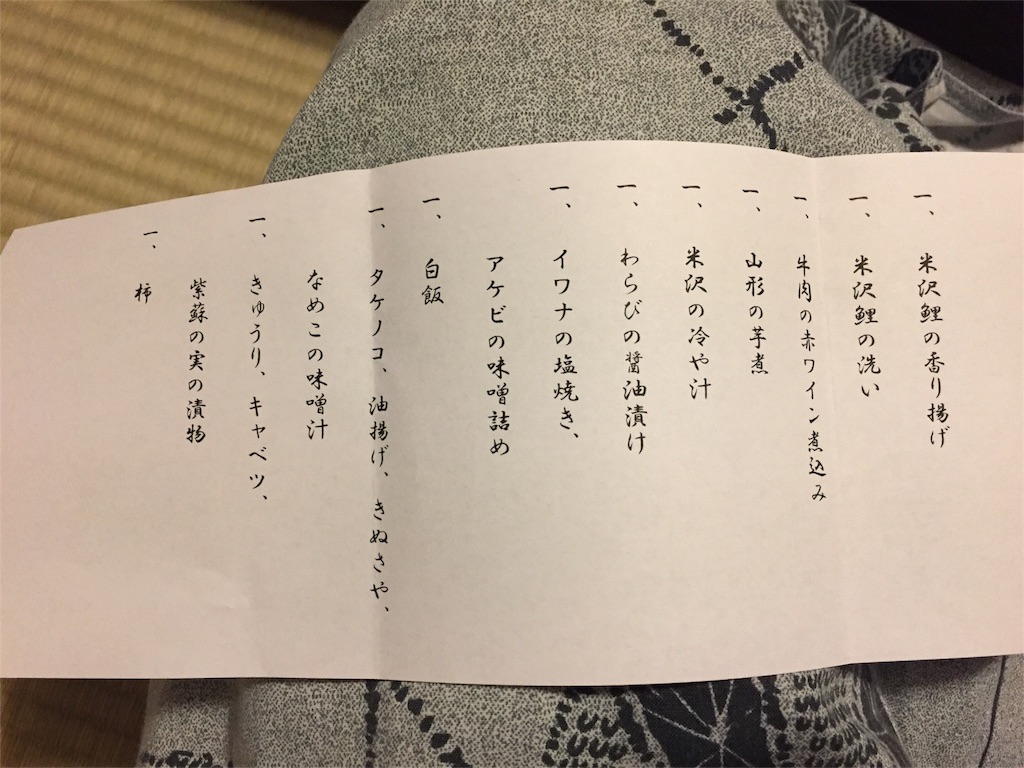 一、 米沢鯉の香り揚げ
一、 米沢鯉の洗い
一、 牛肉の赤ワイン煮込み
一、 山形の芋煮
一、 米沢の冷や汁
一、 わらびの醤油漬け
一、 イワナの塩焼き、
アケビの味噌詰め
一、 白飯
一、 タケノコ、油揚げ、きぬさや、
なめこの味噌汁
一、 きゅうり、キャベツ、
紫蘇の実の漬物
一、 柿